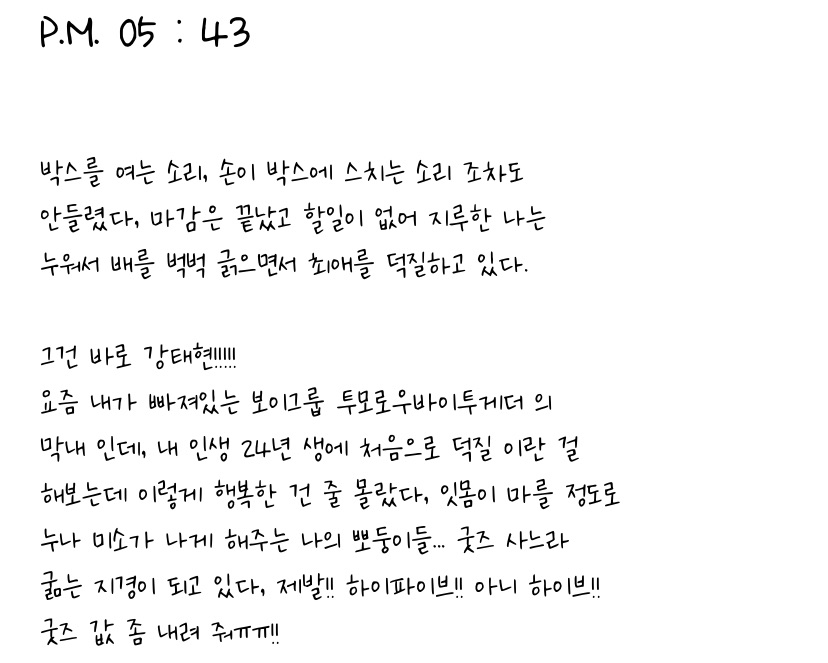 P.M. 05 : 43
박스를 여는 소리, 손이 박스에 스치는 소리 조차도
안들렸다, 마감은 끝났고 할일이 없어 지루한 나는
누워서 배를 벅벅 긁으면서 최애를 덕질하고 있다.
그건 바로 강태현!!!!!
요즘 내가 빠져있는 보이그룹 투모로우바이투게더 의
막내 인데, 내 인생 24년 생에 처음으로 덕질 이란 걸
해보는데 이렇게 행복한 건 줄 몰랐다, 잇몸이 마를 정도로
누나 미소가 나게 해주는 나의 뽀둥이들... 굿즈 사느라
굶는 지경이 되고 있다, 제발!! 하이파이브!! 아니 하이브!!
굿즈 값 좀 내려 줘ㅠㅠ!!